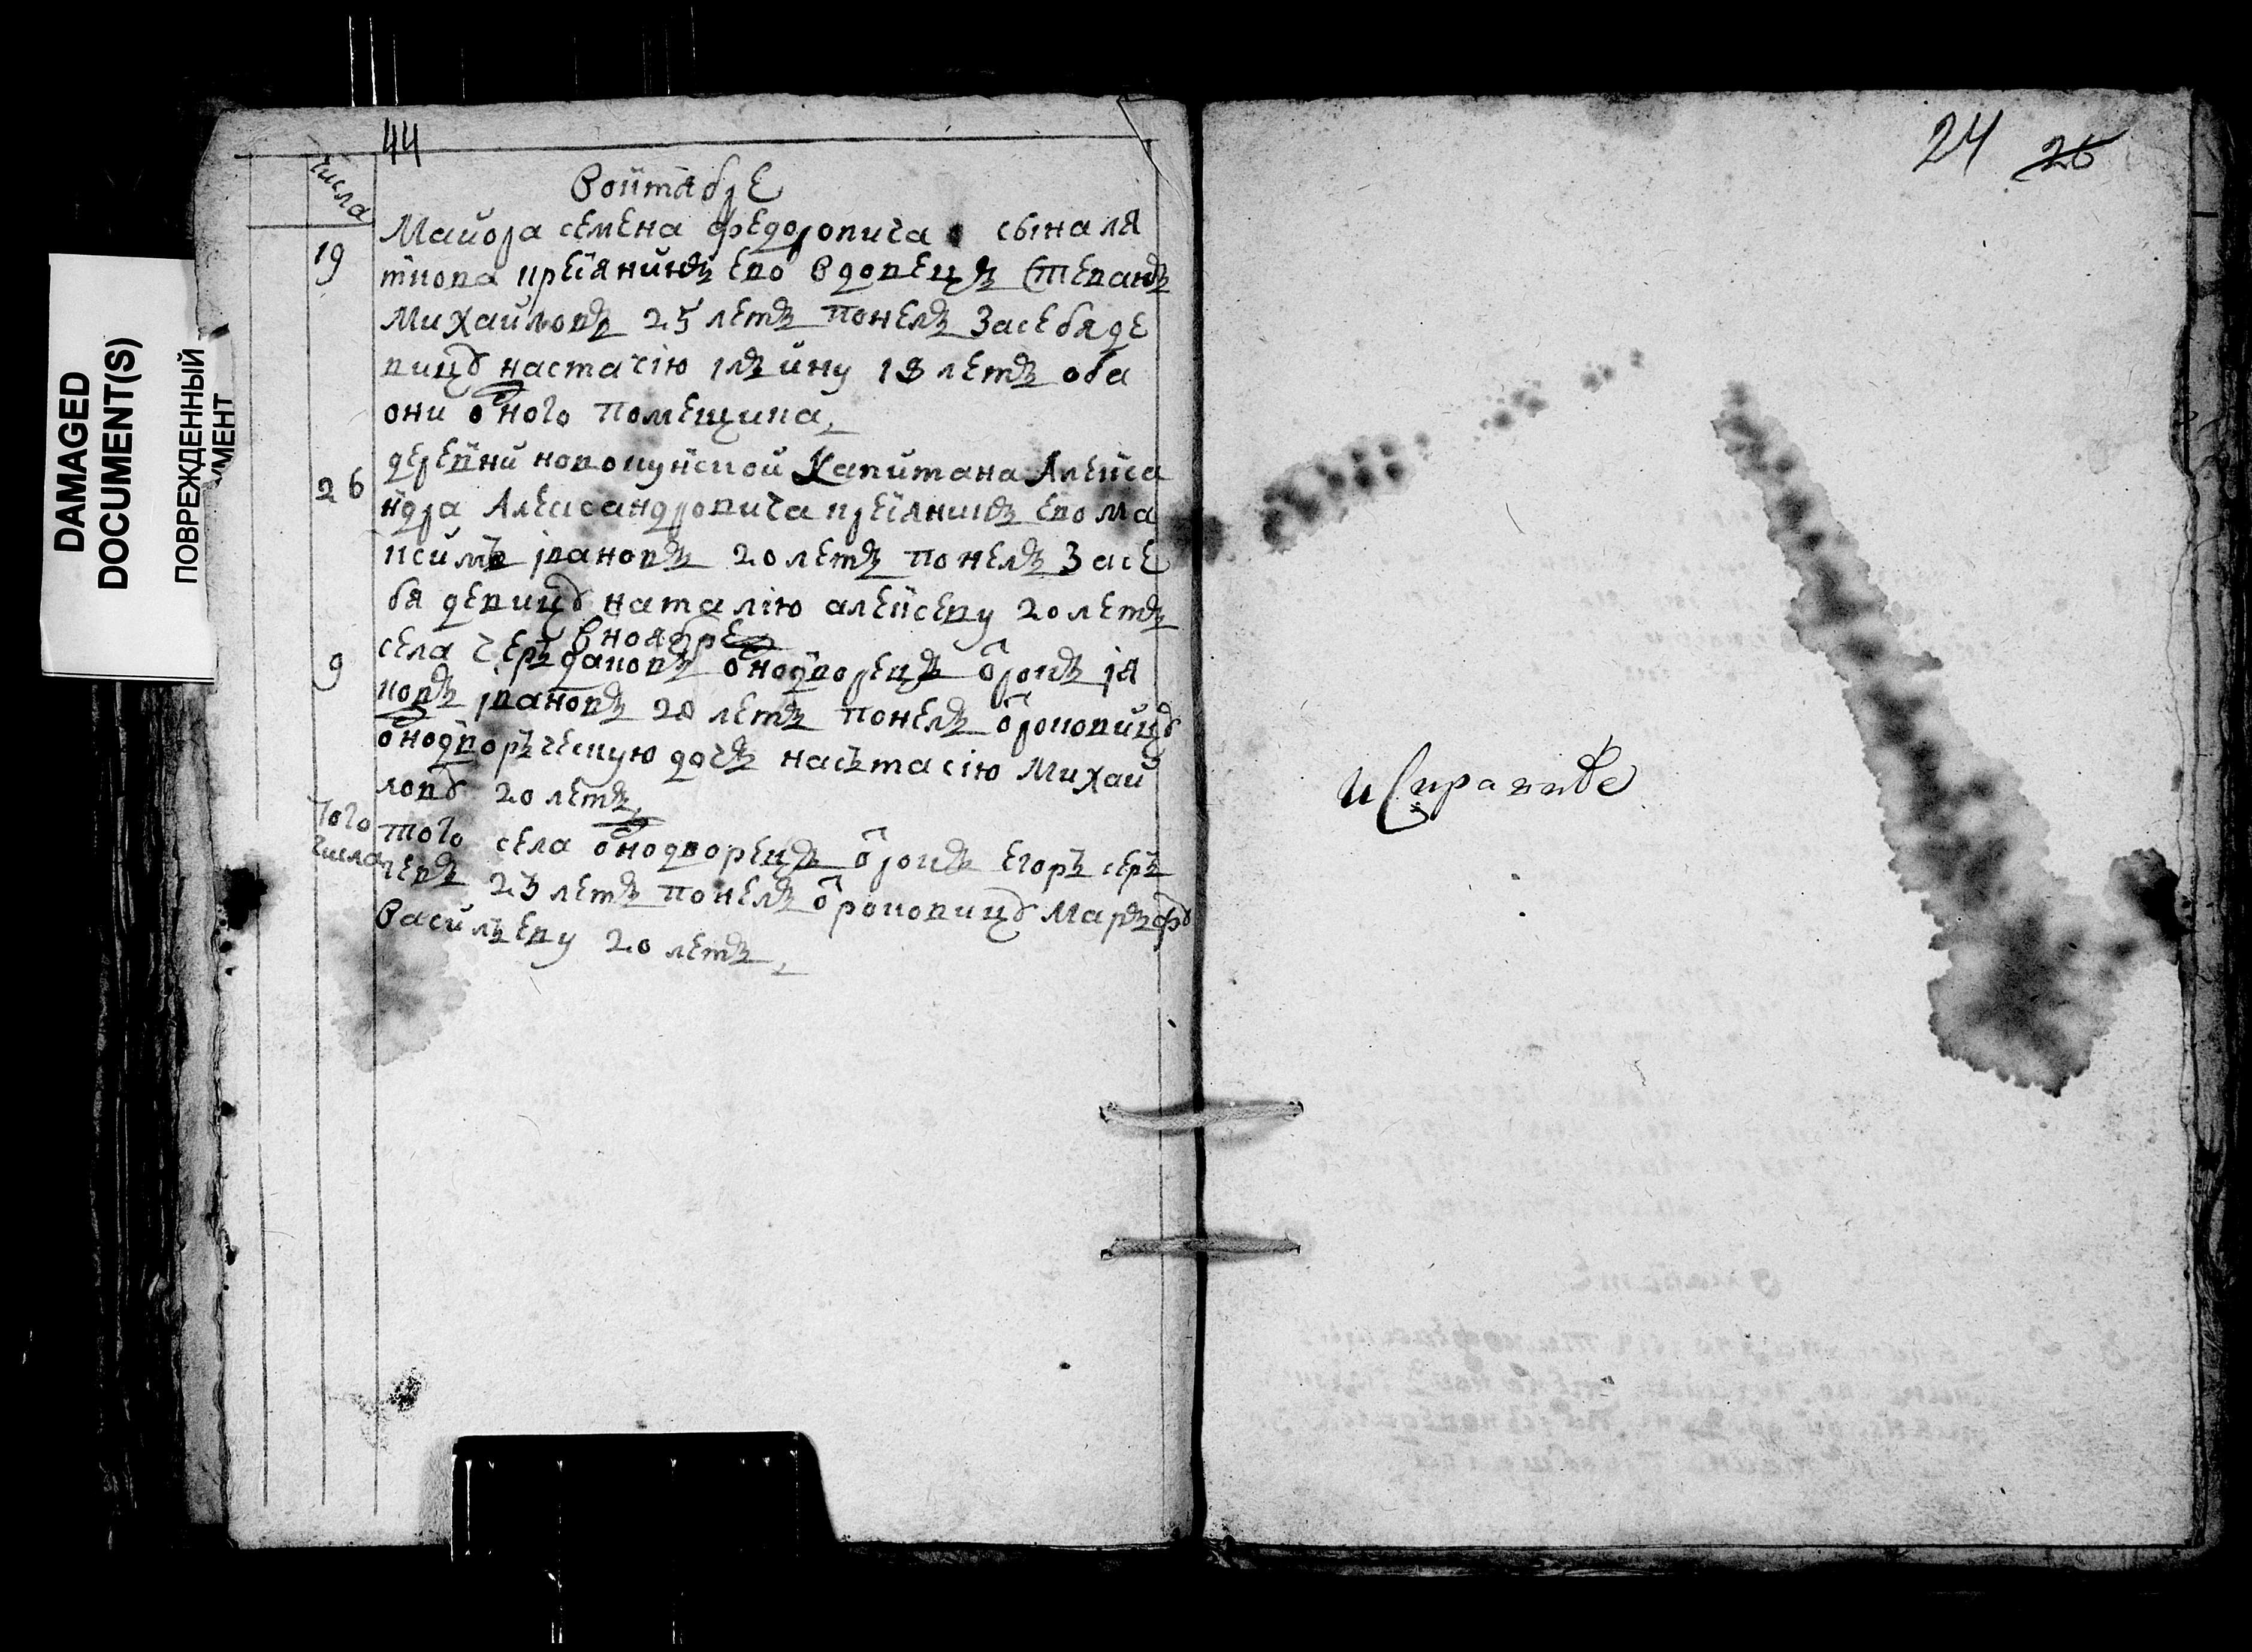 DAMAGED
DOCUMENT(S)
ПОВРЕЖДЕННЫЙ
УМЕНТ
44
числа
Воктябре
19
Майора семена федоровича сынала
крестьянинъ ево вдовецъ степанъ
Михайловъ 25 летъ понелъ засебя де
вицу настасїю 18 летъ оба
они оного помещика
26
деревни капитана Алекса
ндра Александровича крестьянинъ ево ма
ксимъ ївановъ 20 летъ понелъ засе
бя девицу наталїю алексеву 20 летъ
в ноябре
9
села однодворецъ отрокъ їя
ковъ ївановъ 20 летъ понелъ отроковицу
однодворъческую дочь насътасїю Михай
лову 20 летъ
того
числа
того села однодворецъ отрокъ егоръ сер
гевъ 23 летъ понелъ отроковицу Маръфу
Васильеву 20 летъ
24 26